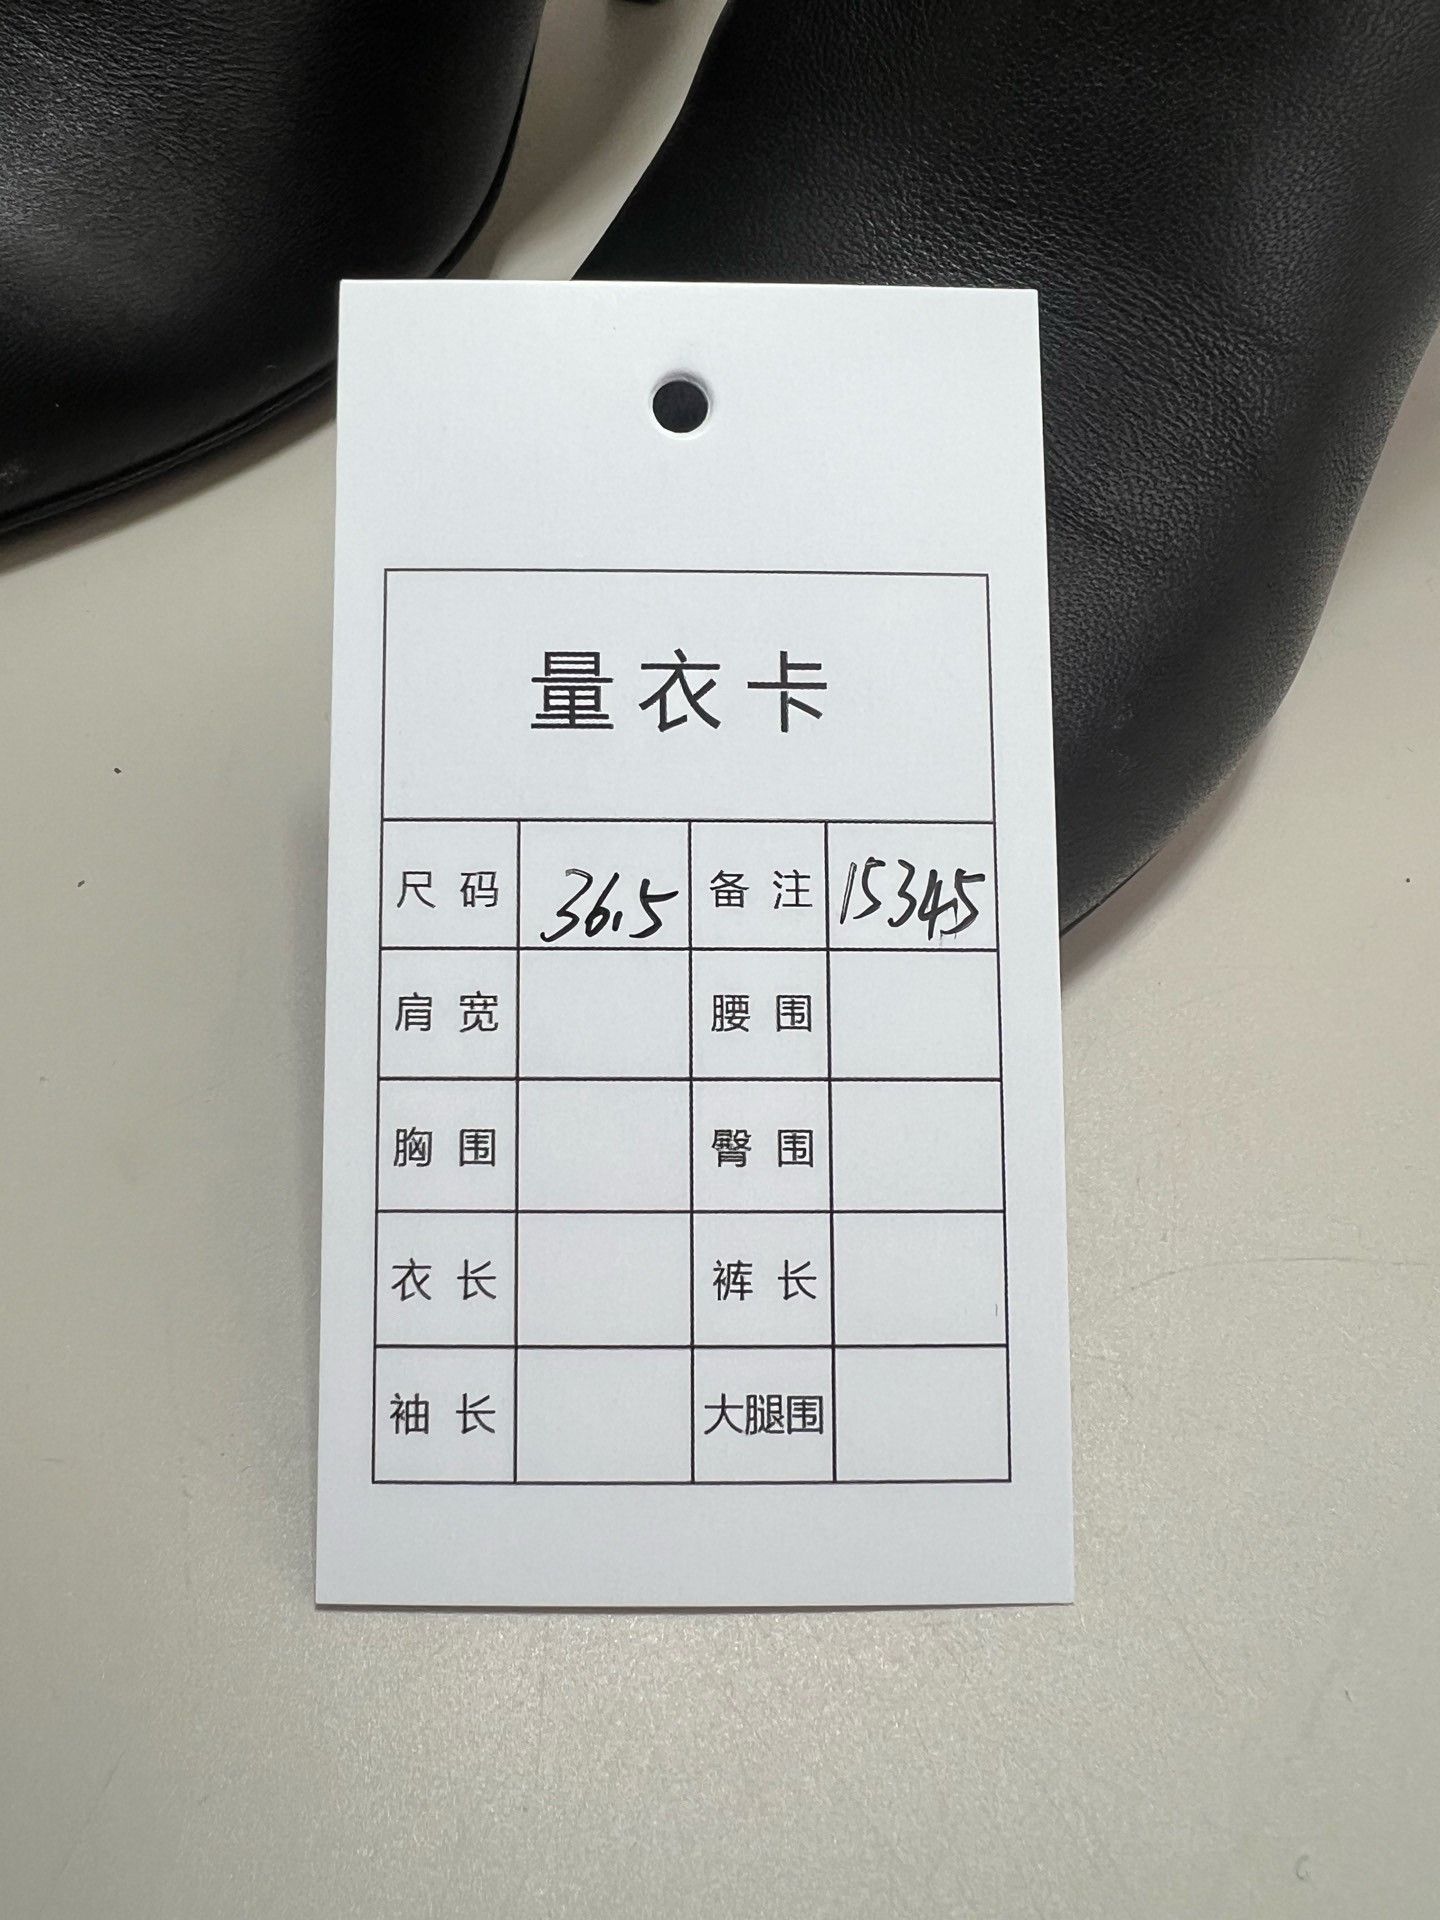 量衣卡
尺码 36.5 备注 15345
肩宽 腰围
胸围 臀围
衣长 裤长
袖长 大腿围